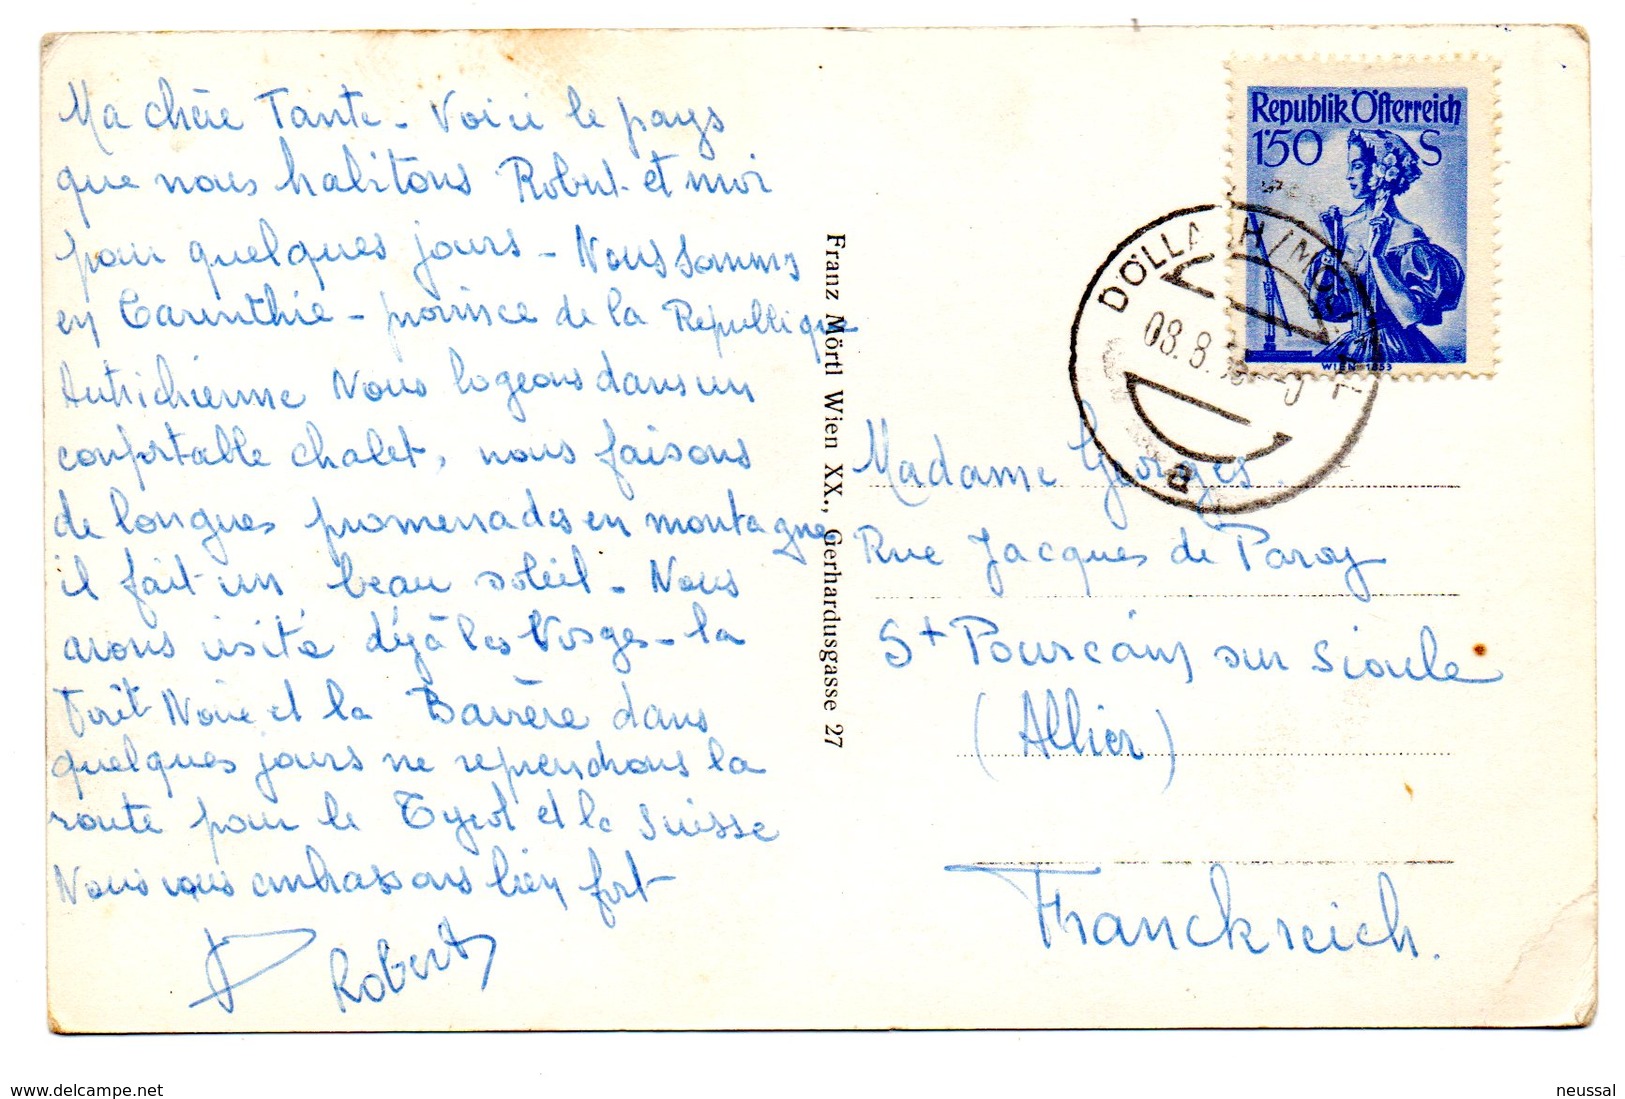 Ma chère Tante - Voici le pays
que nous habitons Robert et moi
pour quelques jours - Nous sommes
en Carinthie - province de la République
Autrichienne Nous logeons dans un
confortable chalet, nous faisons
de longues promenades en montagne
il fait un beau soleil - Nous
avons visité déjà les Vosges - la
Forêt Noire et la Bavière dans
quelques jours ne reprendrons la
route pour le Tyrol et la Suisse
Nous vous embrassons bien fort
Robert
Franz Mörtl Wien XX., Gerhardusgasse 27
Republik Österreich
1'50 S
WIEN 1853
DÖLLACH/MÖLLTAL
08.8.
a
Madame Georges
Rue Jacques de Paroy
St Pourçain sur Sioule
(Allier)
Franckreich.
www.delcampe.net
neussal